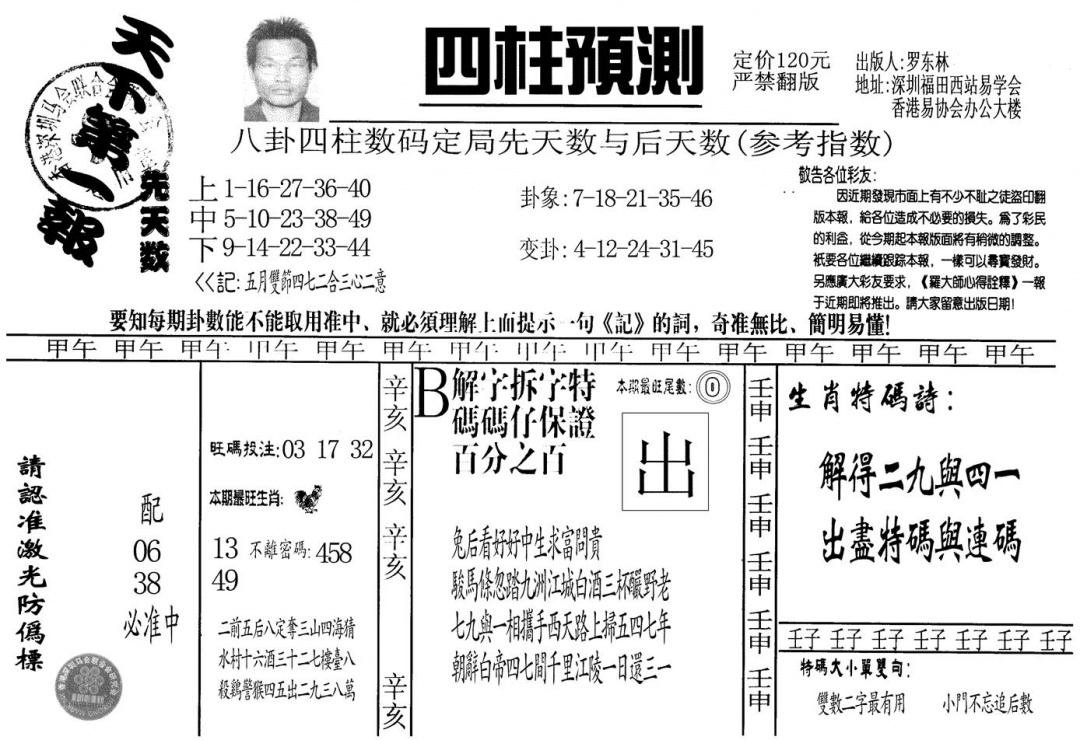 天下第一報
四柱預測
定价120元
严禁翻版
出版人:罗东林
地址:深圳福田西站易学会
香港易协会办公大楼
八卦四柱数码定局先天数与后天数(参考指数)
先天数
上 1-16-27-36-40
中 5-10-23-38-49
下 9-14-22-33-44
<<記: 五月雙節四七二合三心二意
卦象: 7-18-21-35-46
变卦: 4-12-24-31-45
敬告各位彩友:
因近期發現市面上有不少不耻之徒盜印翻
版本報,給各位造成不必要的損失。爲了彩民
的利益,從今期起本報版面將有稍微的調整。
衹要各位繼續跟踪本報,一樣可以尋寶發財。
另應廣大彩友要求,《羅大師心得詮釋》一報
于近期即將推出。請大家留意出版日期!
要知每期卦數能不能取用准中、就必須理解上面提示一句《記》的詞,奇准無比、簡明易懂!
甲午 甲午 甲午 甲午 甲午 甲午 甲午 甲午 甲午 甲午 甲午 甲午 甲午 甲午 甲午
請認准激光防僞標
配
06
38
必准中
旺碼投注:03 17 32
本期最旺生肖:
13 不離密碼:458
49
二前五后八定奪三山四海猜
水村十六酒三十二七樓臺八
殺鷄警猴四五出二九三八萬
辛亥
辛亥
辛亥
辛亥
B
解字拆字特
碼碼仔保證
百分之百
本期最旺尾數:0
出
兔后看好好中生求富問貴
駿馬條忽踏九洲江城白酒三杯釅野老
七九與一相攜手西天路上掃五四七年
朝辭白帝四七間千里江陵一日還三一
壬申
壬申
壬申
壬申
壬申
壬申
生肖特碼詩:
解得二九與四一
出盡特碼與連碼
壬子 壬子 壬子 壬子 壬子 壬子 壬子
特碼大小單雙句:
雙數二字最有用 小門不忘追后數